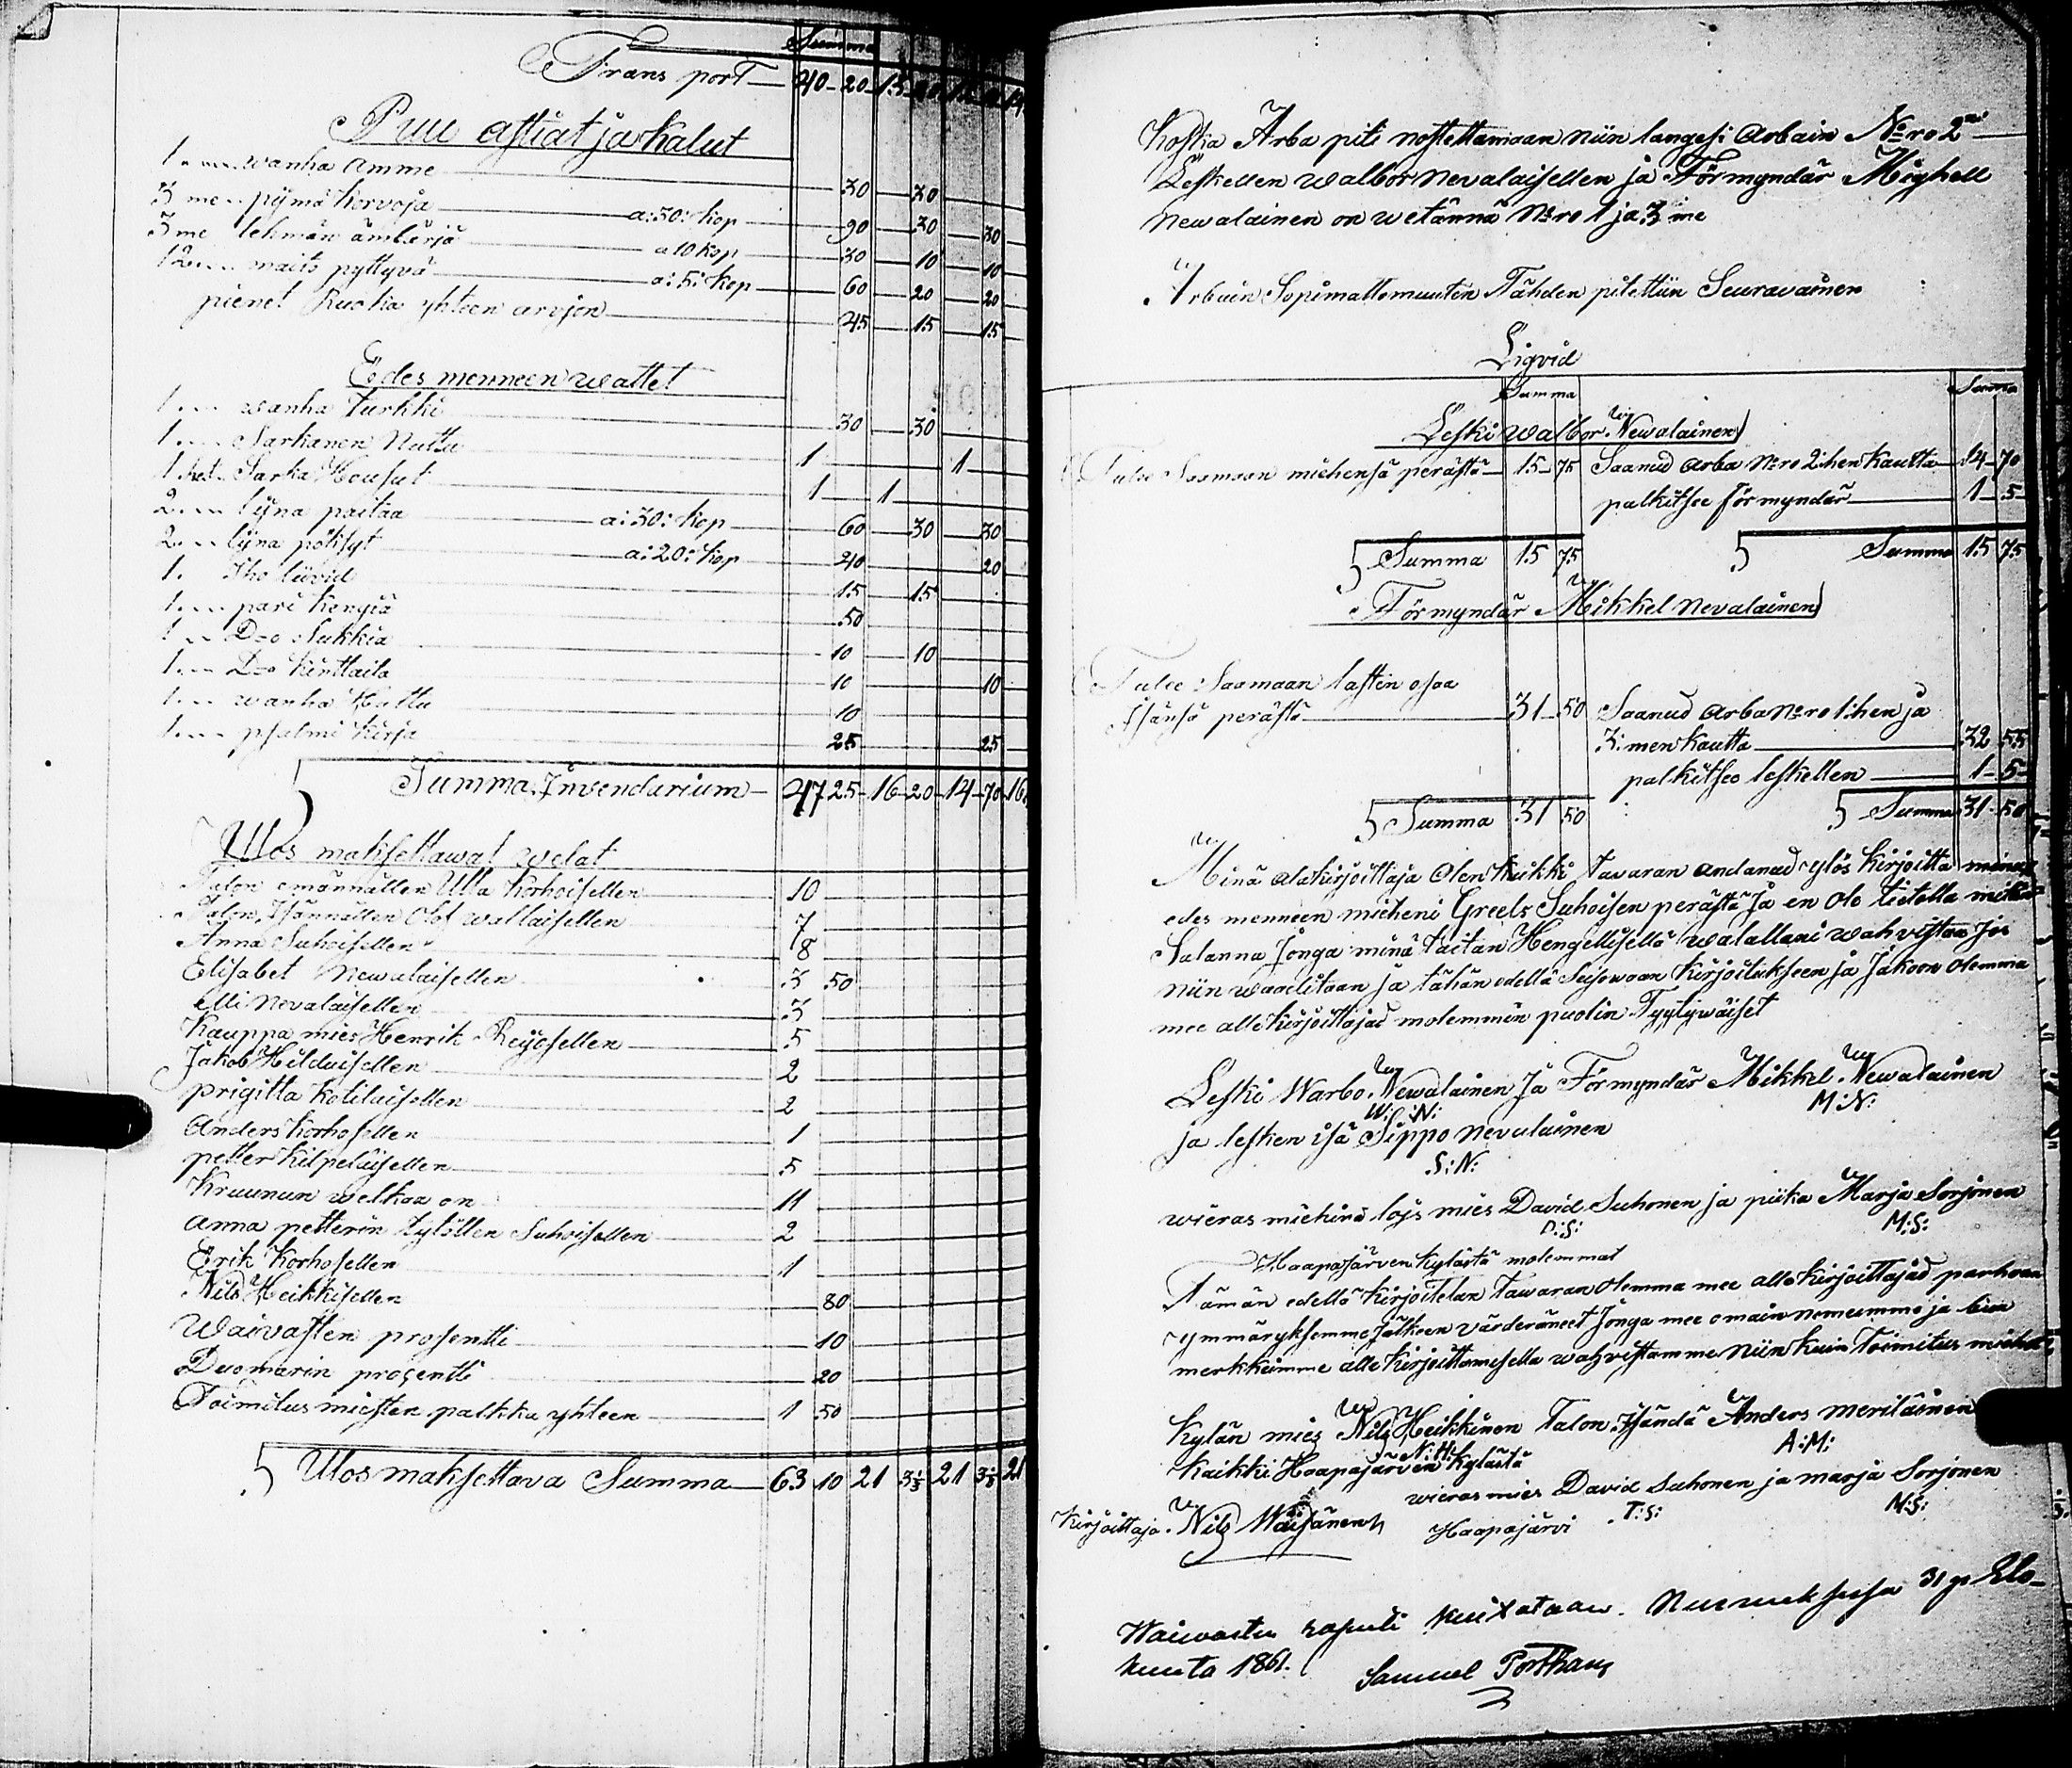 Summa
Trans port 40 20 15
Puu astiat ja Kalut
1 wanha amme 30 30
3 me pijmä korvoja a: 30: kop 90 30 30
3 me lehmän ämbärjä a 10 kop 30 10 10
12 maito pyttyvä a: 5: kop 60 20 20
pienet Ruoka yhteen arvjon 45 15 15
Edes menneen wattet
1 wanha turkki 30 30
1 Sarkanen Nuttu 1 1
1 Sarka Housut 1 1
2 lijna paitaa a: 30: kop 60 30 30
2 lijna pöksyt a: 20: kop 40 20
1. Iho liivid 15 15
1 pari kengiä 50
1 D-o Sukkia 10 10
1 D-o kinttaita 10 10
1 wanha Hattu 10
1 psalmi kirja 25 25
Summa Invendarium 47 25 16 20 14 70 16
Ulos maksettawat welat
Talon emännällen Ulla Korhoisellen 10
Talon Isännällen Olof wallaisellen 7
Anna Suhoisellen 8
Elisabet Newalaisellen 3 50
elli Nevalaisellen 3
Kauppa mies Henrik Reijosellen 5
Jakob Hilduisellen 2
prigitta Kotilaisellen 2
Anders Korhosellen 1
petter Kilpeläisellen 5
Kruunun welkaa on 11
Anna petterin tytöllen Suhoisellen 2
Erik Korhosellen 1
Nils Heikkisellen 80
Waivasten prosentti 10
Duomarin prosentti 20
Toimitus miesten palkka yhteen 1 50
Ulos maksettava Summa 63 10 21 3⅓ 21 3⅓ 21
Koska Arba piti nostettamaan niin langesi Arbain No ro 2
Leskellen walbor Nevalaisellen ja Förmyndär Mighell
Newalainen on wetännä No ro 1 ja 3 me
Arbain Sopimattomuuten Tähden pitettiin Seuravainen
Liqvid
Summa Summa
Leski walbor Newalainen
Tulee Saamaan miehensä perästä 15 75 Saanud Arba No ro 2:hen kautta 14 70
palkitsee förmyndär 1 5
Summa 15 75 Summa 15 75
Förmyndär Mikkel Nevalainen
Tulee Saamaan lasten osaa
Isänsä perästä 31 50 Saanud Arba No ro 1:hen ja
3:men kautta 32 55
palkitsee leskellen 1 5
Summa 31 50 Summa 31 50
Minä alakirjoittaja olen kaikki tavaran andanud ylös kirjoitta
edes menneen mieheni Greels Suhoisen perästä Ja en ole tietella mitän
Salanna Jonga minä taitan Hengellisellä walallani wahvistaa jos
niin waaditaan ja tähän edellä Seisowaan kirjoitukseen ja Jakoon olemma
mee alle kirjoittajad molemmin puolin Tyytywäiset
Leski Warbo Newalainen Ja Förmyndär Mikkel Newalainen
W: N: M: N:
ja lesken isä Sippo Nevalainen
S: N:
wieras miehinä lojs mies David Suhonen ja piika Marja Sorjonen
D: S: M: S:
Haapajärven kylästä molemmat
Tämän edellä kirjoitetan tawaran olemma mee alle kirjoittajad parhaan
ymmäryksemme Jälkeen värderäneet Jonga mee omain nemeemme ja
merkkeimme alle kirjoittamisella wahvistamme niin kuin Toimitus miehet
Kylän mies Nils Heikkinen Talon Isändä Anders meriläinen
N: H: A: M:
Kaikki Haapajärven kylästä
wieras mies David Suhonen ja marja Sorjonen
Kirjoittaja Nils Wäisänen Haapajärvi T: S: M: S:
Waiwasten Nurmeksessa 31 p Elo-
kuuta 1861.
Samuel Porthan